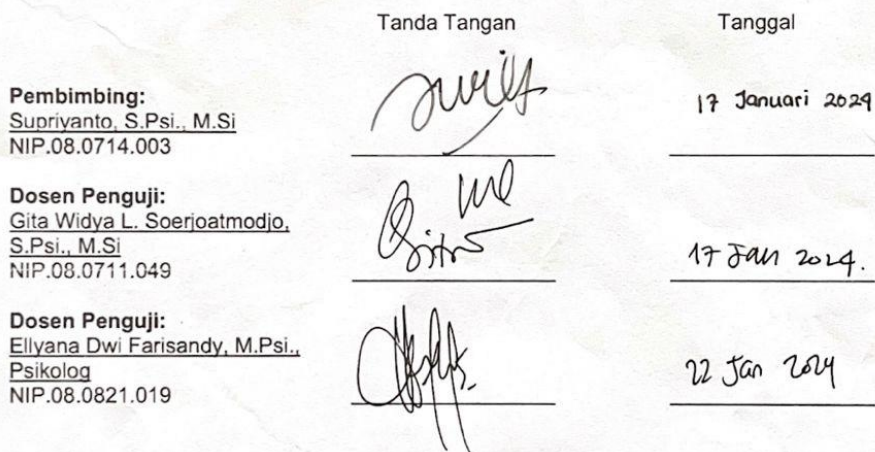 Tanda Tangan Tanggal
Pembimbing:
Supriyanto, S.Psi., M.Si
NIP.08.0714.003
17 Januari 2024
Dosen Penguji:
Gita Widya L. Soerjoatmodjo,
S.Psi., M.Si
NIP.08.0711.049
17 Jan 2024.
Dosen Penguji:
Ellyana Dwi Farisandy, M.Psi.,
Psikolog
NIP.08.0821.019
22 Jan 2024